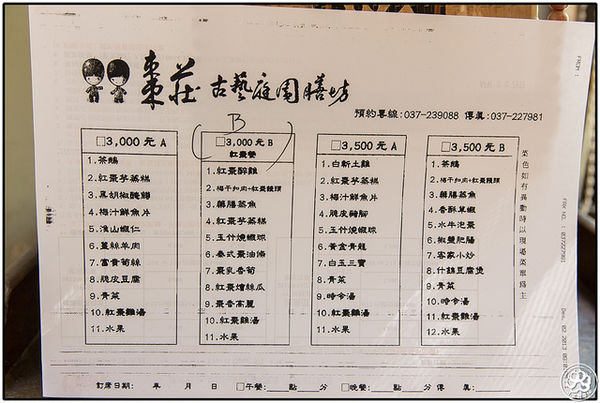 棗莊 古藝庭園膳坊
預約專線:037-239088 傳真:037-227981
B
□3,000元 A
1.茶鵝
2.紅棗芋蒸糕
3.黑胡椒醃鱘
4.梅汁鮮魚片
5.淮山蝦仁
6.薑絲羊肉
7.富貴筍絲
8.脆皮豆腐
9.青菜
10.紅棗雞湯
11.水果
□3,000元 B
紅棗餐
1.紅棗醉雞
2.梅干扣肉+紅棗饅頭
3.藥膳蒸魚
4.紅棗芋蒸糕
5.玉竹燒蝦球
6.泰式棗油條
7.棗乳香筍
8.棗燴絲瓜
9.棗香高麗
10.紅棗雞湯
11.水果
□3,500元 A
1.白斬土雞
2.紅棗芋蒸糕
3.梅汁鮮魚片
4.脆皮豬腳
5.玉竹燒蝦球
6.黃金青龍
7.白玉三寶
8.青菜
9.時令湯
10.紅棗雞湯
11.水果
□3,500元 B
1.茶鵝
2.梅干扣肉+紅棗饅頭
3.藥膳蒸魚
4.香酥草蝦
5.水牛泡棗
6.椒鹽肥腸
7.客家小炒
8.什錦豆腐煲
9.青菜
10.時令湯
11.紅棗雞湯
12.水果
菜色如有異動時以現場菜單為主
訂席日期: 年 月 日 □午餐:__點__分 □晚餐:__點__分 傳真:
FROM :
FAX NO. : 037227981
Dec. 02 2013